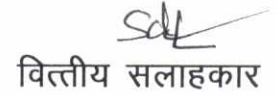 Sd/-
वित्तीय सलाहकार